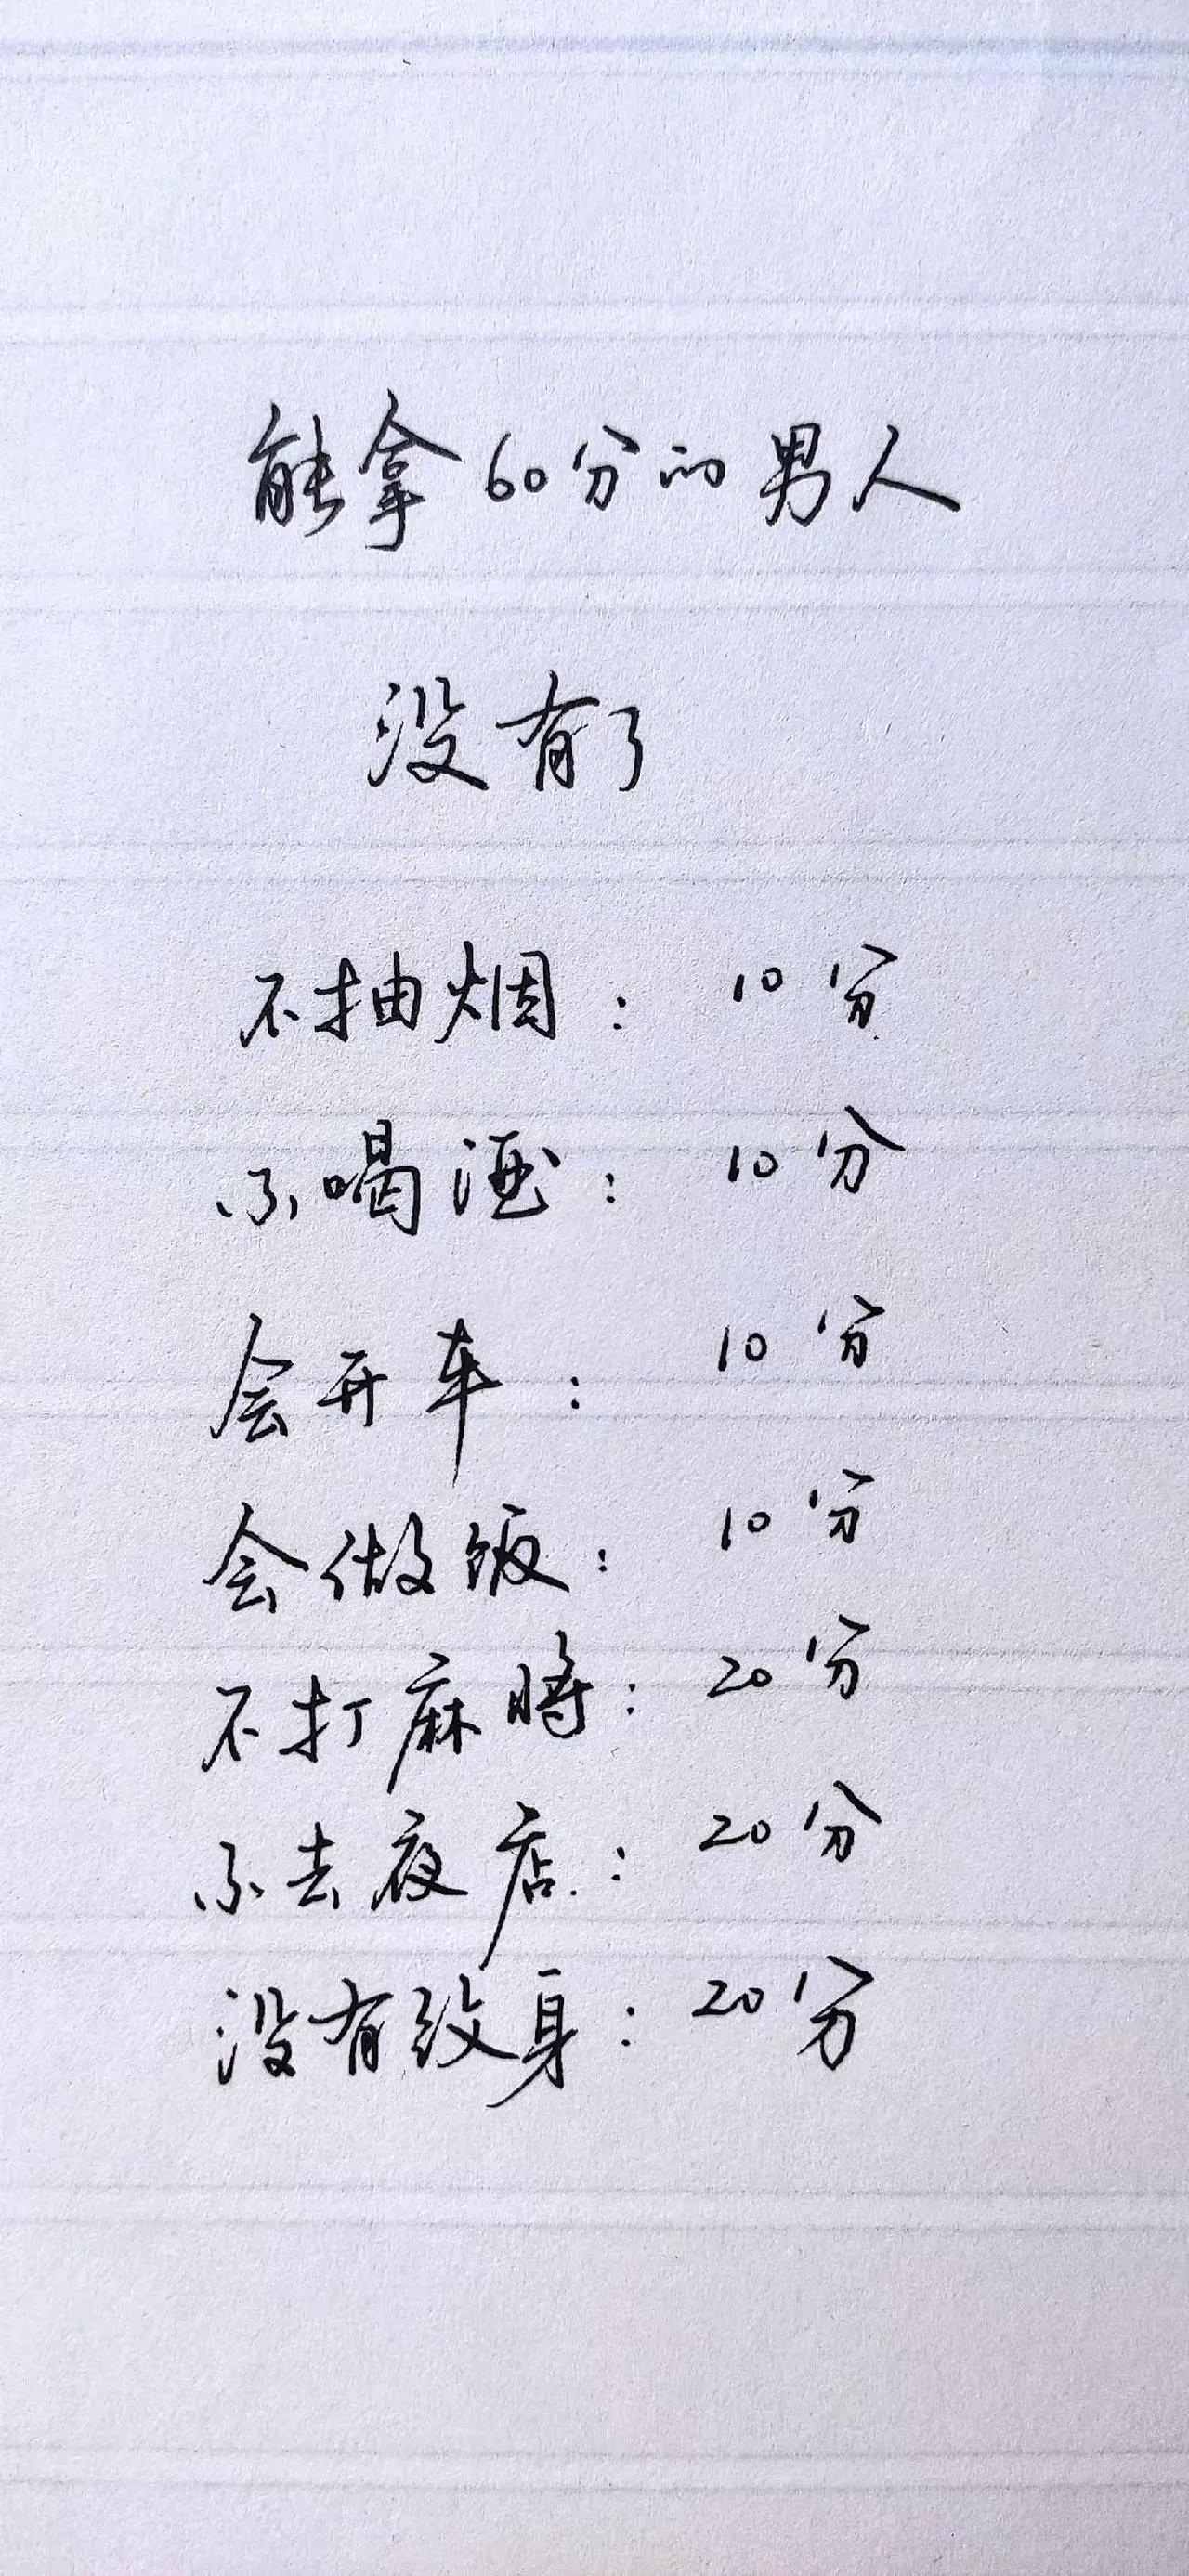 能拿60分的男人
没有了
不抽烟：10分
不喝酒：10分
会开车：10分
会做饭：10分
不打麻将：20分
不去夜店：20分
没有纹身：20分